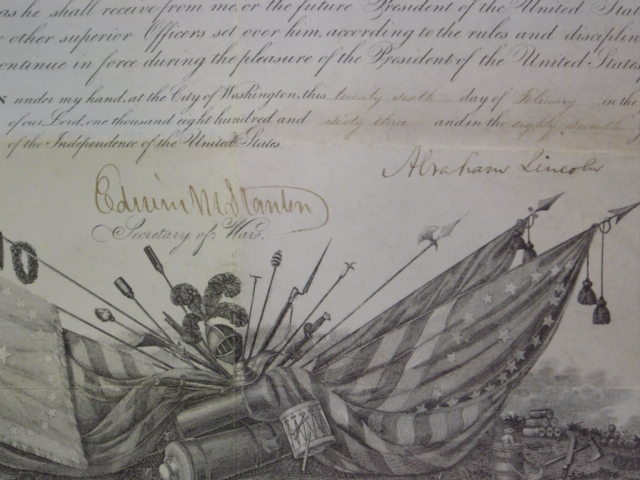 as he shall receive from me, or the future President of the United Sta
other superior Officers set over him, according to the rules and disciplin
ontinue in force during the pleasure of the President of the United States
under my hand, at the City of Washington, this twenty sixth day of February in the
of our Lord, one thousand eight hundred and sixty three and in the eighty seventh
of the Independence of the United States.
Abraham Lincoln
Edwin M Stanton
Secretary of War.